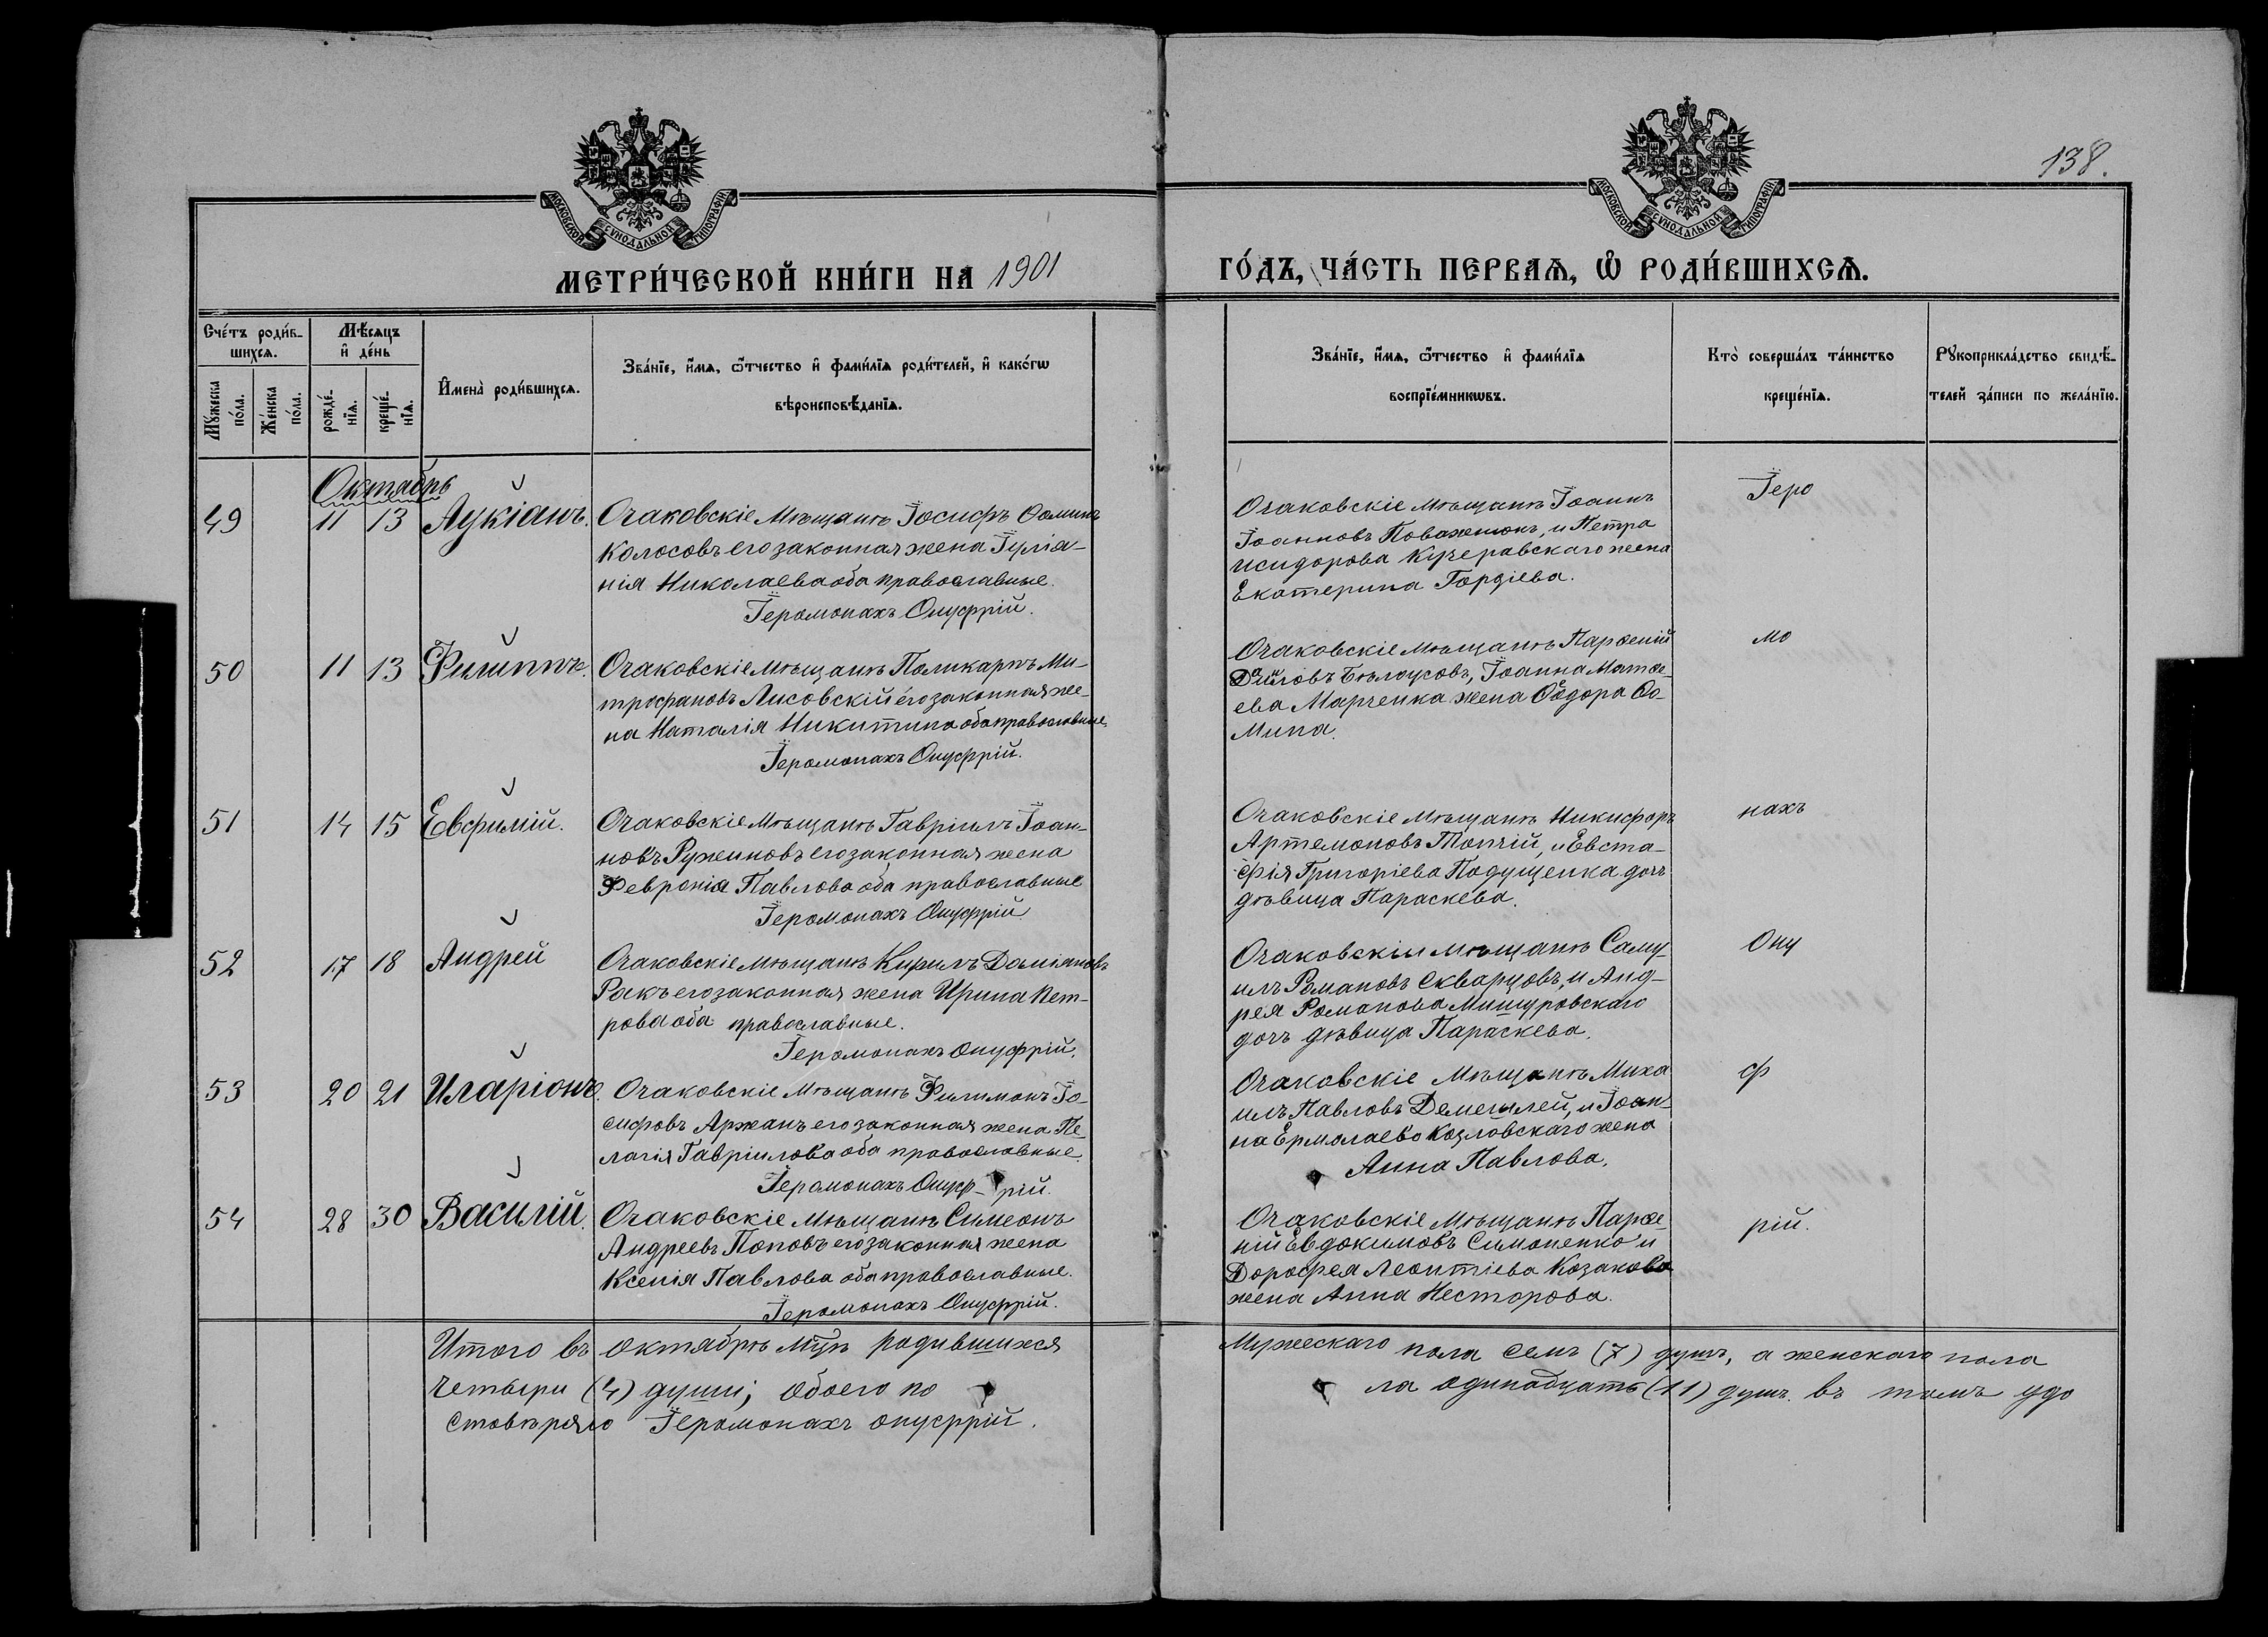 138.
МОСКОВСКОЙ СѴНОДАЛЬНОЙ ТИПОГРАФІИ
МОСКОВСКОЙ СѴНОДАЛЬНОЙ ТИПОГРАФІИ
МЕТРИ́ЧЕСКОЙ КНИ́ГИ НА 1901
ГО́ДЪ, ЧА́СТЬ ПЕРВАѦ, Ѡ҆ РОДИ́ВШИХСѦ.
Сче́тъ роди́в-
шихсѧ.
Мꙋжеска по́ла.
Же́нска по́ла.
Мѣ́сѧцъ
и҆ де́нь
рожде́-
нїѧ.
креще́-
нїѧ.
И҆мена̀ роди́вшихсѧ.
Зва́нїе, и҆́мѧ, ѻ҆́тчество и҆ фами́лїѧ роди́телей, и҆ како́гѡ
вѣроисповѣ́данїѧ.
Зва́нїе, и҆́мѧ, ѻ҆́тчество и҆ фами́лїѧ
воспрїе́мникѡвъ.
Кто̀ соверша́лъ та́инство
креще́нїѧ.
Рꙋкоприкла́дство свидѣ́-
телей за́писи по жела́нїю.
Октябрь
49 11 13 Лукіанъ. Очаковскіе Мѣщанъ Іосифъ Ѳоминъ
Колосовъ его законная жена Іуліа-
нія Николаева оба православные.
Іеромонахъ Онуфрій.
Очаковскіе мѣщанъ Іоаннъ
Іоанновъ Поважнюкъ, и Петра
Исидорова Кучеравскаго жена
Екатерина Гордіева.
Іеро
50 11 13 Филиппъ. Очаковскіе мѣщанъ Поликарпъ Ми-
трофановъ Лисовскій его законная же-
на Наталія Никитина оба православные.
Іеромонахъ Онуфрій.
Очаковскіе мѣщанъ Парѳеній
Бѣлоусовъ, Іоанна Матѳе-
ева Марченка жена Ѳеодора Ѳо-
мина.
мо
51 14 15 Евфимій. Очаковскіе Мѣщанъ Гавріилъ Іоан-
новъ Ружиновъ его законная жена
Февронія Павлова оба православные
Іеромонахъ Онуфрій
Очаковскіе мѣщанъ Никифоръ
Артемоновъ Топчій, и Евста-
фія Григоріева Подущенка дочь
дѣвица Параскева.
нахъ
52 17 18 Андрей Очаковскіе мѣщанъ Кирилъ Даміановъ
Ракъ его законная жена Ирина Пет-
рова оба православные.
Іеромонахъ Онуфрій.
Очаковскіи мѣщанъ Саму-
илъ Романовъ Скварцовъ, и Анд-
рея Романова Мишуровскаго
дочь дѣвица Параскева.
Ону
53 20 21 Иларіонъ. Очаковскіе мѣщанъ Филимонъ Іо-
сифовъ Аржанъ его законная жена Пе-
лагія Гавріилова оба православные.
Іеромонахъ Онуф-рій.
Очаковскіе Мѣщанъ Миха
илъ Павловъ Демешлей, и Іоан-
на Ермолаева Козловскаго жена
Анна Павлова.
ф
54 28 30 Василій. Очаковскіе Мѣщанъ Симеонъ
Андреевъ Поповъ его законная жена
Ксенія Павлова оба православные.
Іеромонахъ Онуфрій.
Очаковскіе Мѣщанъ Парѳе-
ній Евдокимовъ Симоненко и
Дорофея Леонтіева Козакова
жена Анна Несторова.
рій.
Итого въ октябрѣ мцѣ родившихся
Мужескаго пола семь (7) душъ, а женскаго пола
четыри (4) души; обоего по
ла одинадцать (11) душъ. въ томъ удо
стовѣряю Іеромонахъ Онуфрій.